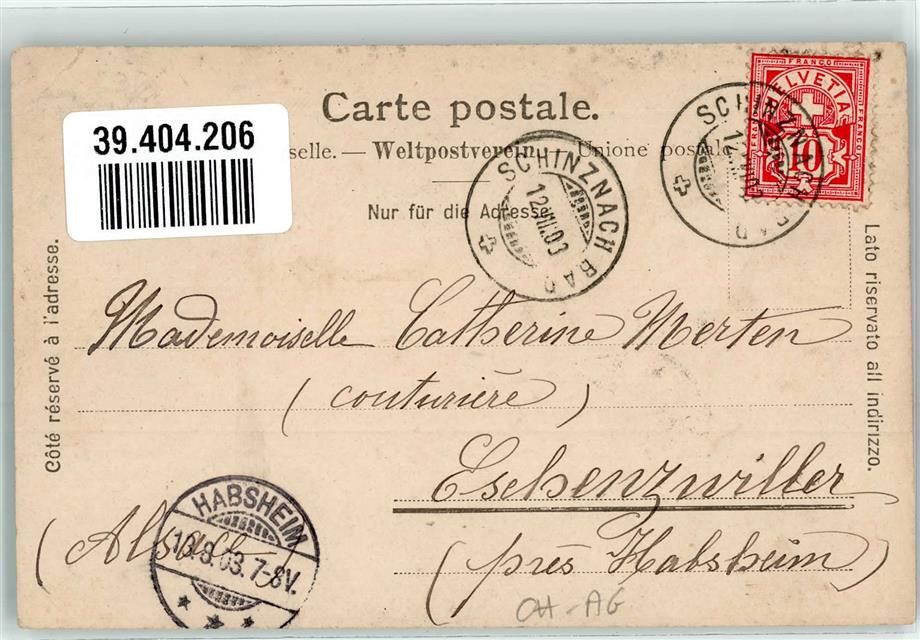 39.404.206
Carte postale.
selle. — Weltpostverein. — Unione postale
Nur für die Adresse.
FRANCO
HELVETIA
FRANCO
FRANCO
10
SCHINZNACH BAD
SCHINZNACH BAD
12.VIII.03
Côté réservé à l'adresse.
Lato riservato all indirizzo.
Mademoiselle Catherine Merten
(couturière)
Eschenzwiller
(près Habsheim)
(Alsace
HABSHEIM
13.8.03.7-8V.
CH-AG